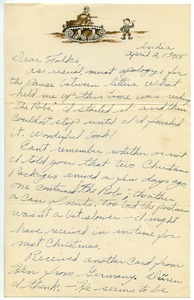 India
April 2, 1945
Dear Folks,
As usual, must apologize for
the pause between letters. What
held me up this time was read
"The Robe". I started it and then
couldn't stop until I'd finished
it. Wonderful book!
Can't remember whether or not
I told you that two Christmas
packages arrived a few days ago
one contained the Robe, & another
a can of nuts, too bad
wasn't a bit slower - I might
have received in in time for
next Christmas.
Received another card from
Ken from Germany,
I think. He seems to be